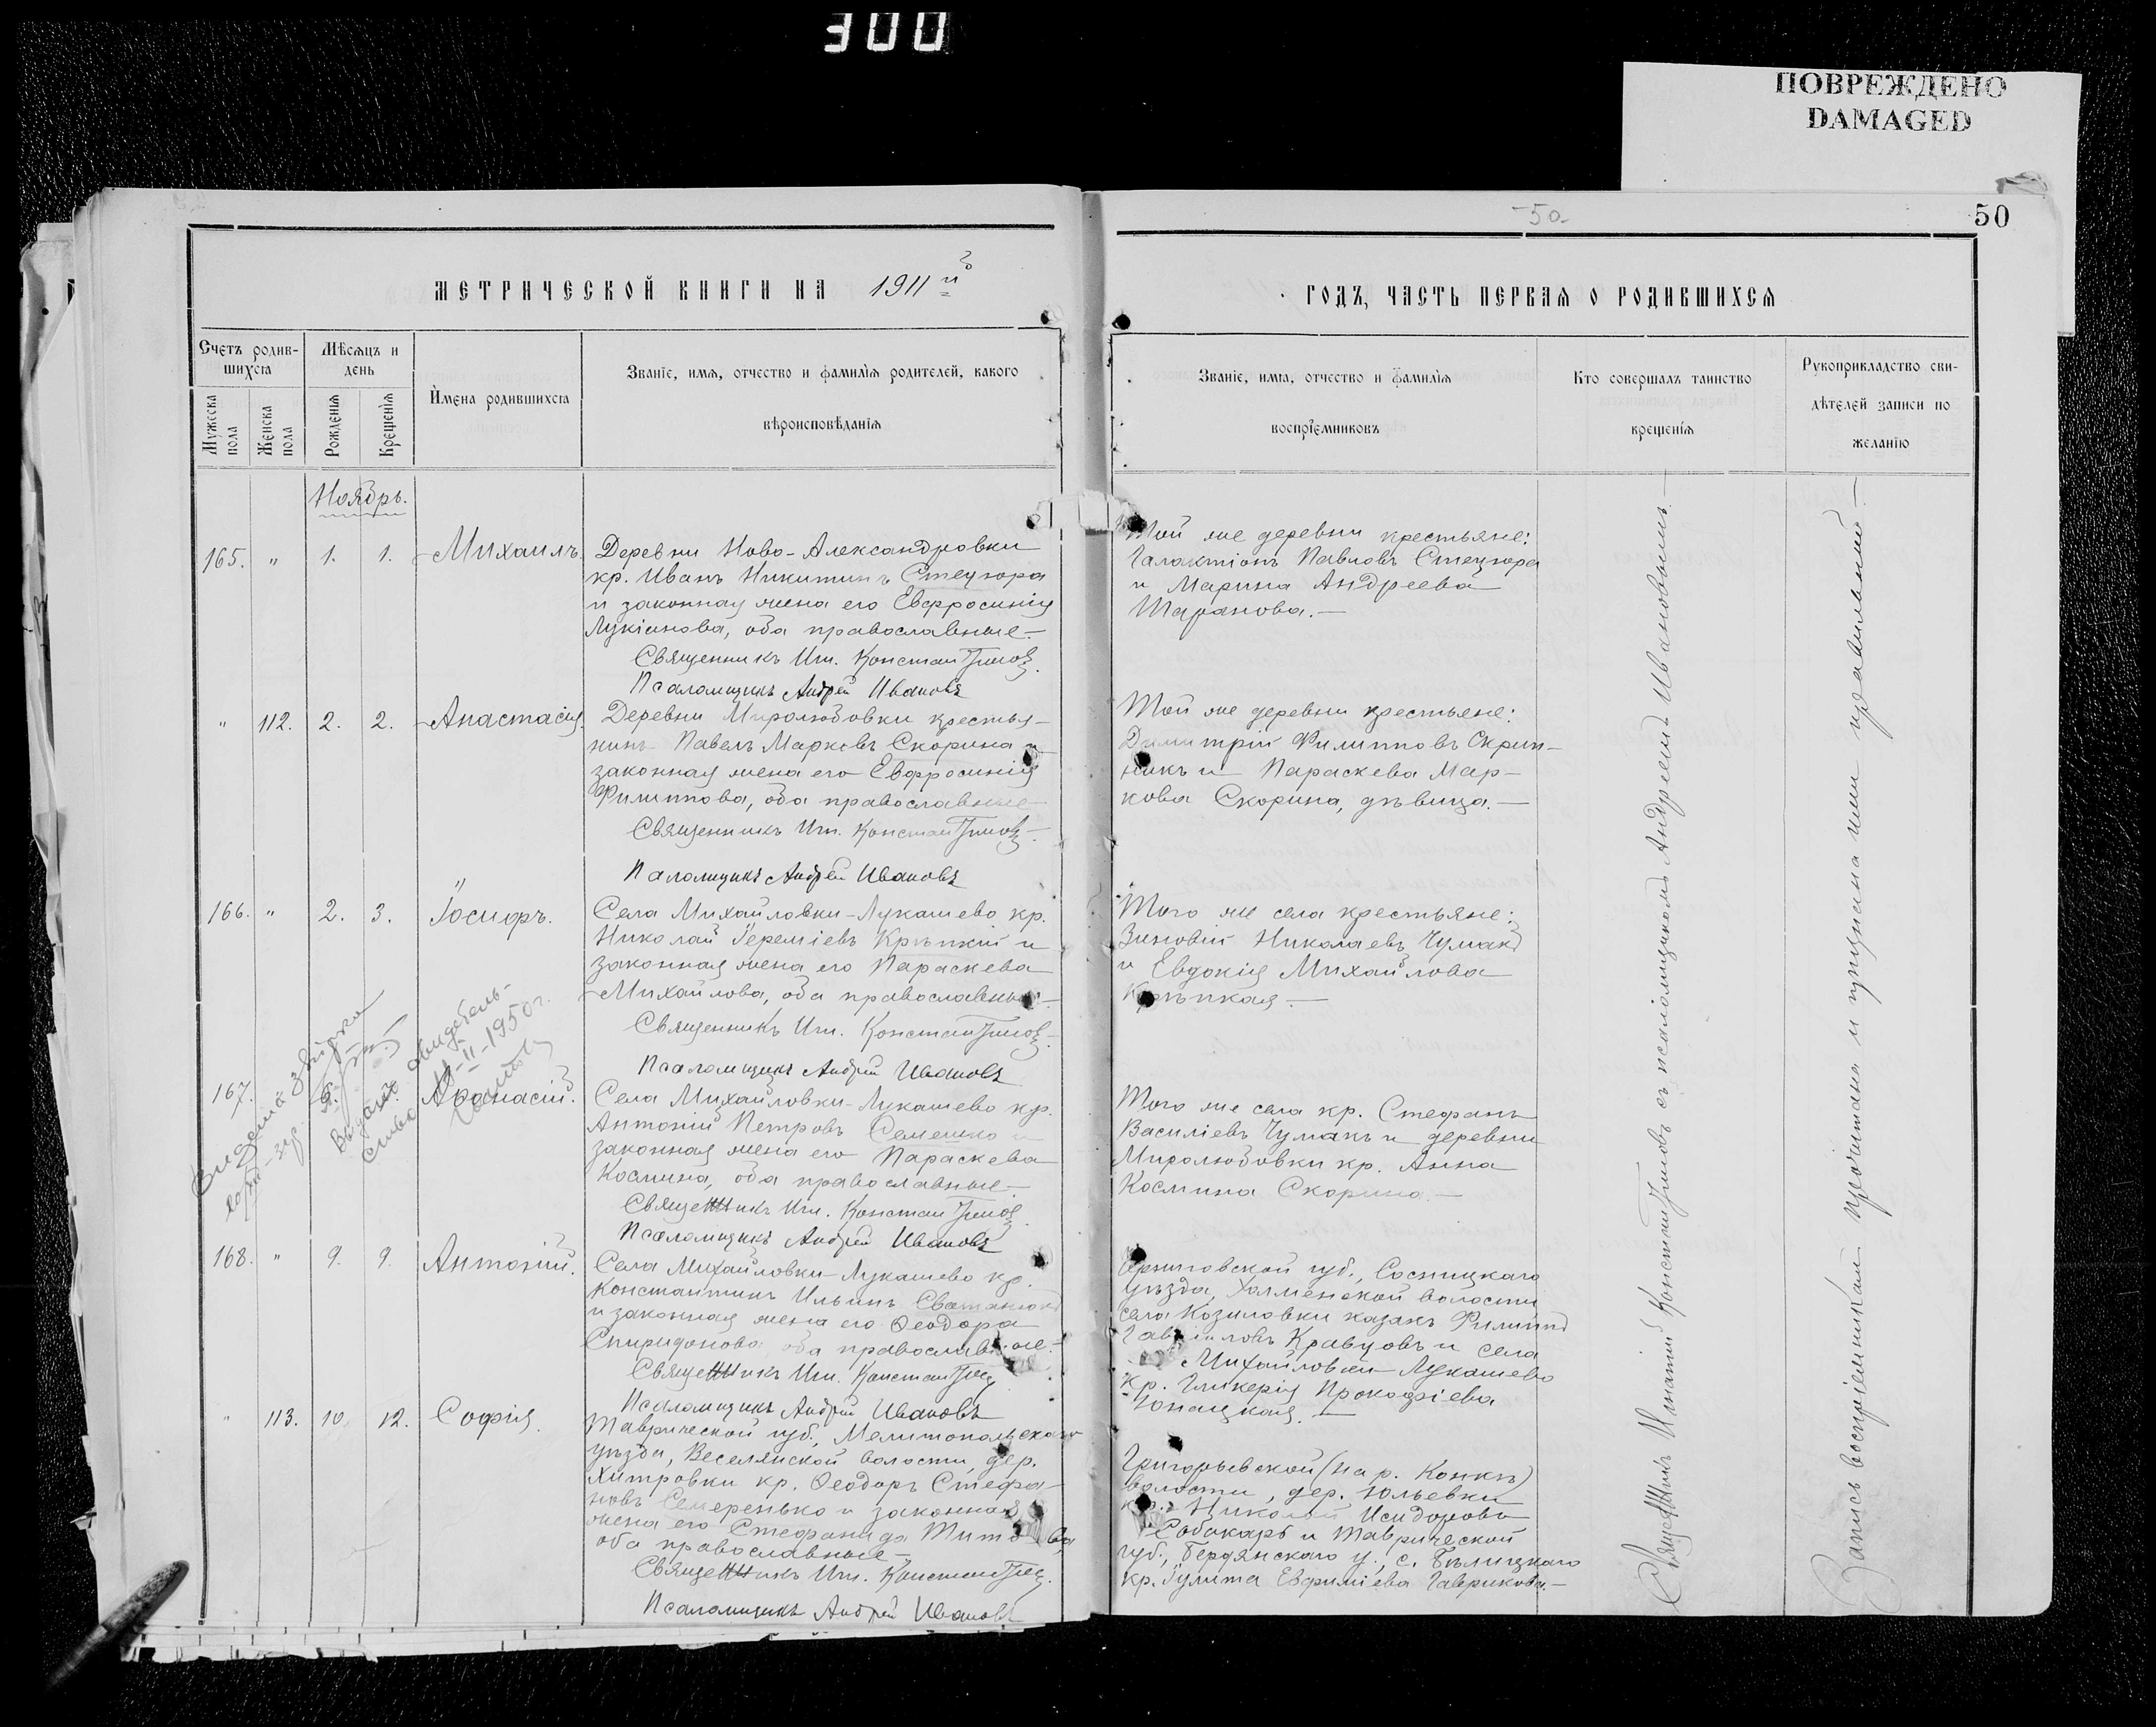 300
ПОВРЕЖДЕНО
DAMAGED
-50-
50
МЕТРИЧЕСКОЙ КНИГИ НА 1911й
ГОДЪ, ЧАСТЬ ПЕРВАЯ О РОДИВШИХСЯ
Счетъ родив-
шихся
Мѣсяцъ и
день
Мужеска
пола
Женска
пола
Рожденія
Крещенія
Имена родившихся
Званіе, имя, отчество и фамилія родителей, какого
вѣроисповѣданія
Званіе, имя, отчество и фамилія
воспріемниковъ
Кто совершалъ таинство
крещенія
Рукоприкладство сви-
дѣтелей записи по
желанію
Ноябрь.
165. " 1. 1. Михаилъ.
Деревни Ново-Александровки
кр. Иванъ Никитинъ Стецюра
и законная жена его Евфросинія
Лукіанова, оба православные.-
Священникъ Игн. Констан
Псаломщикъ Андрей Ивановъ
Той же деревни крестьяне:
Галактіонъ Павловъ Стецюра
и Марина Андреева
Шаранова.-
" 112. 2. 2. Анастасія.
Деревни Миролюбовки крестья-
нинъ Павелъ Марковъ Скорина и
законная жена его Евфросинія
Филиппова, оба православные-
Священникъ Игн. Констан
Псаломщикъ Андрей Ивановъ
Той же деревни крестьяне:
Димитрій Филипповъ Скрип-
никъ и Параскева Мар-
кова Скорина, дѣвица.-
166. " 2. 3. Іосифъ.
Села Михайловки-Лукашево кр.
Николай Іереміевъ Крѣпкій и
законная жена его Параскева
Михайлова, оба православные-
Священникъ Игн. Констан
Псаломщикъ Андрей Ивановъ
Того же села крестьяне:
Зиновій Николаевъ Чумакъ
и Евдокія Михайлова
Крѣпкая.-
Видана
Выдано свидетель-
ство II-1950г.
167. Аѳанасій.
Села Михайловки-Лукашево кр.
Антоній Петровъ Семешко и
законная жена его Параскева
Космина, оба православные-
Священникъ Игн. Констан
Псаломщикъ Андрей Ивановъ
Того же села кр. Стефанъ
Василіевъ Чумакъ и деревни
Миролюбовки кр. Анна
Космина Скорина.-
168. " 9. 9. Антоній.
Села Михайловки-Лукашево кр.
Константинъ Ильинъ
и законная жена его Ѳеодора
Спиридонова оба православные.-
Священникъ Игн. Констан
Псаломщикъ Андрей Ивановъ
Черниговской губ., Сосницкаго
уѣзда, Холменской волости
села Козиловки казакъ Филиппъ
Гавріиловъ Кравцовъ и села
Михайловки Лукашево
кр. Гликерія Прокофіева
" 113. 10. 12. Софія.
Таврической губ., Мелитопольскаго
уѣзда, Веселянской волости, дер.
Хитровки кр. Ѳеодоръ Стефа-
новъ Семеренько и законная
жена его Стефанида Титова,
оба православные-
Священникъ Игн. Констан
Псаломщикъ Андрей Ивановъ
Григорьевской (на р. Конкѣ)
волости, дер. Юльевки
кр. Николай Исидоровъ
Собакарь и Таврической
губ., Бердянскаго у., с. Бѣлицкаго
кр. Іулита Евфиміева Гаврикова.-
Священникъ Игнатій Константиновъ съ псаломщикомъ Андреемъ Ивановымъ.-
Запись воспріемникамъ прочитана и признана ими правильной-